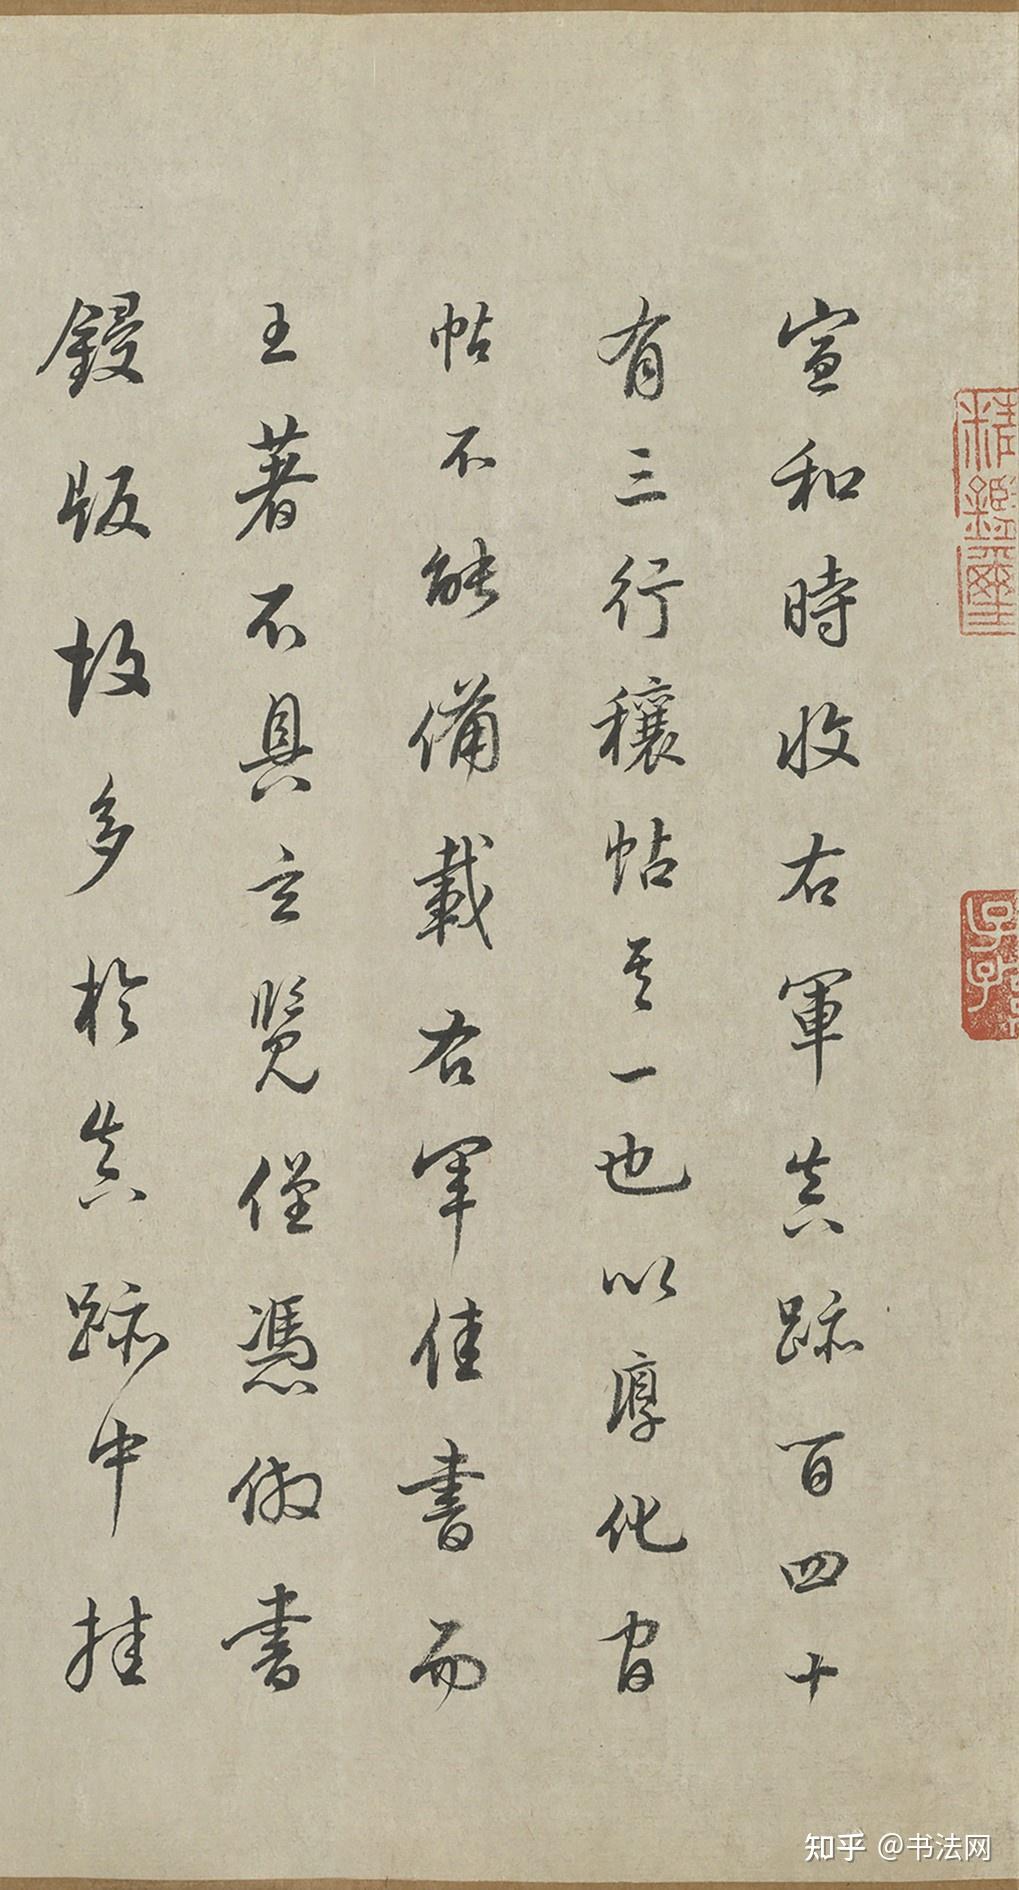 宣和時收右軍真跡百四十
有三行穰帖其一也以淳化官
帖不能備載右軍佳書而
王著不具玄覽僅憑倣書
鋟版故多於真跡中挂
知乎 @书法网